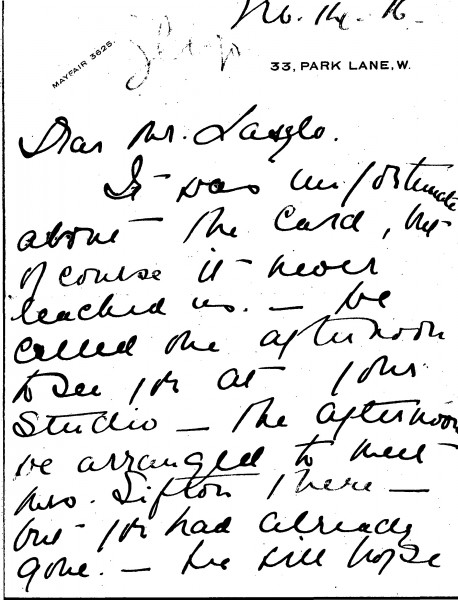 MAYFAIR 3625.
33, PARK LANE, W.
Dear Mr. Laszlo.
It was unfortunate
about the card, but
of course it never
reached us. — We
called one afternoon
to see you at your
Studio — the afternoon
we arranged to meet
Mrs. Sifton there —
but you had already
gone. — We will hope